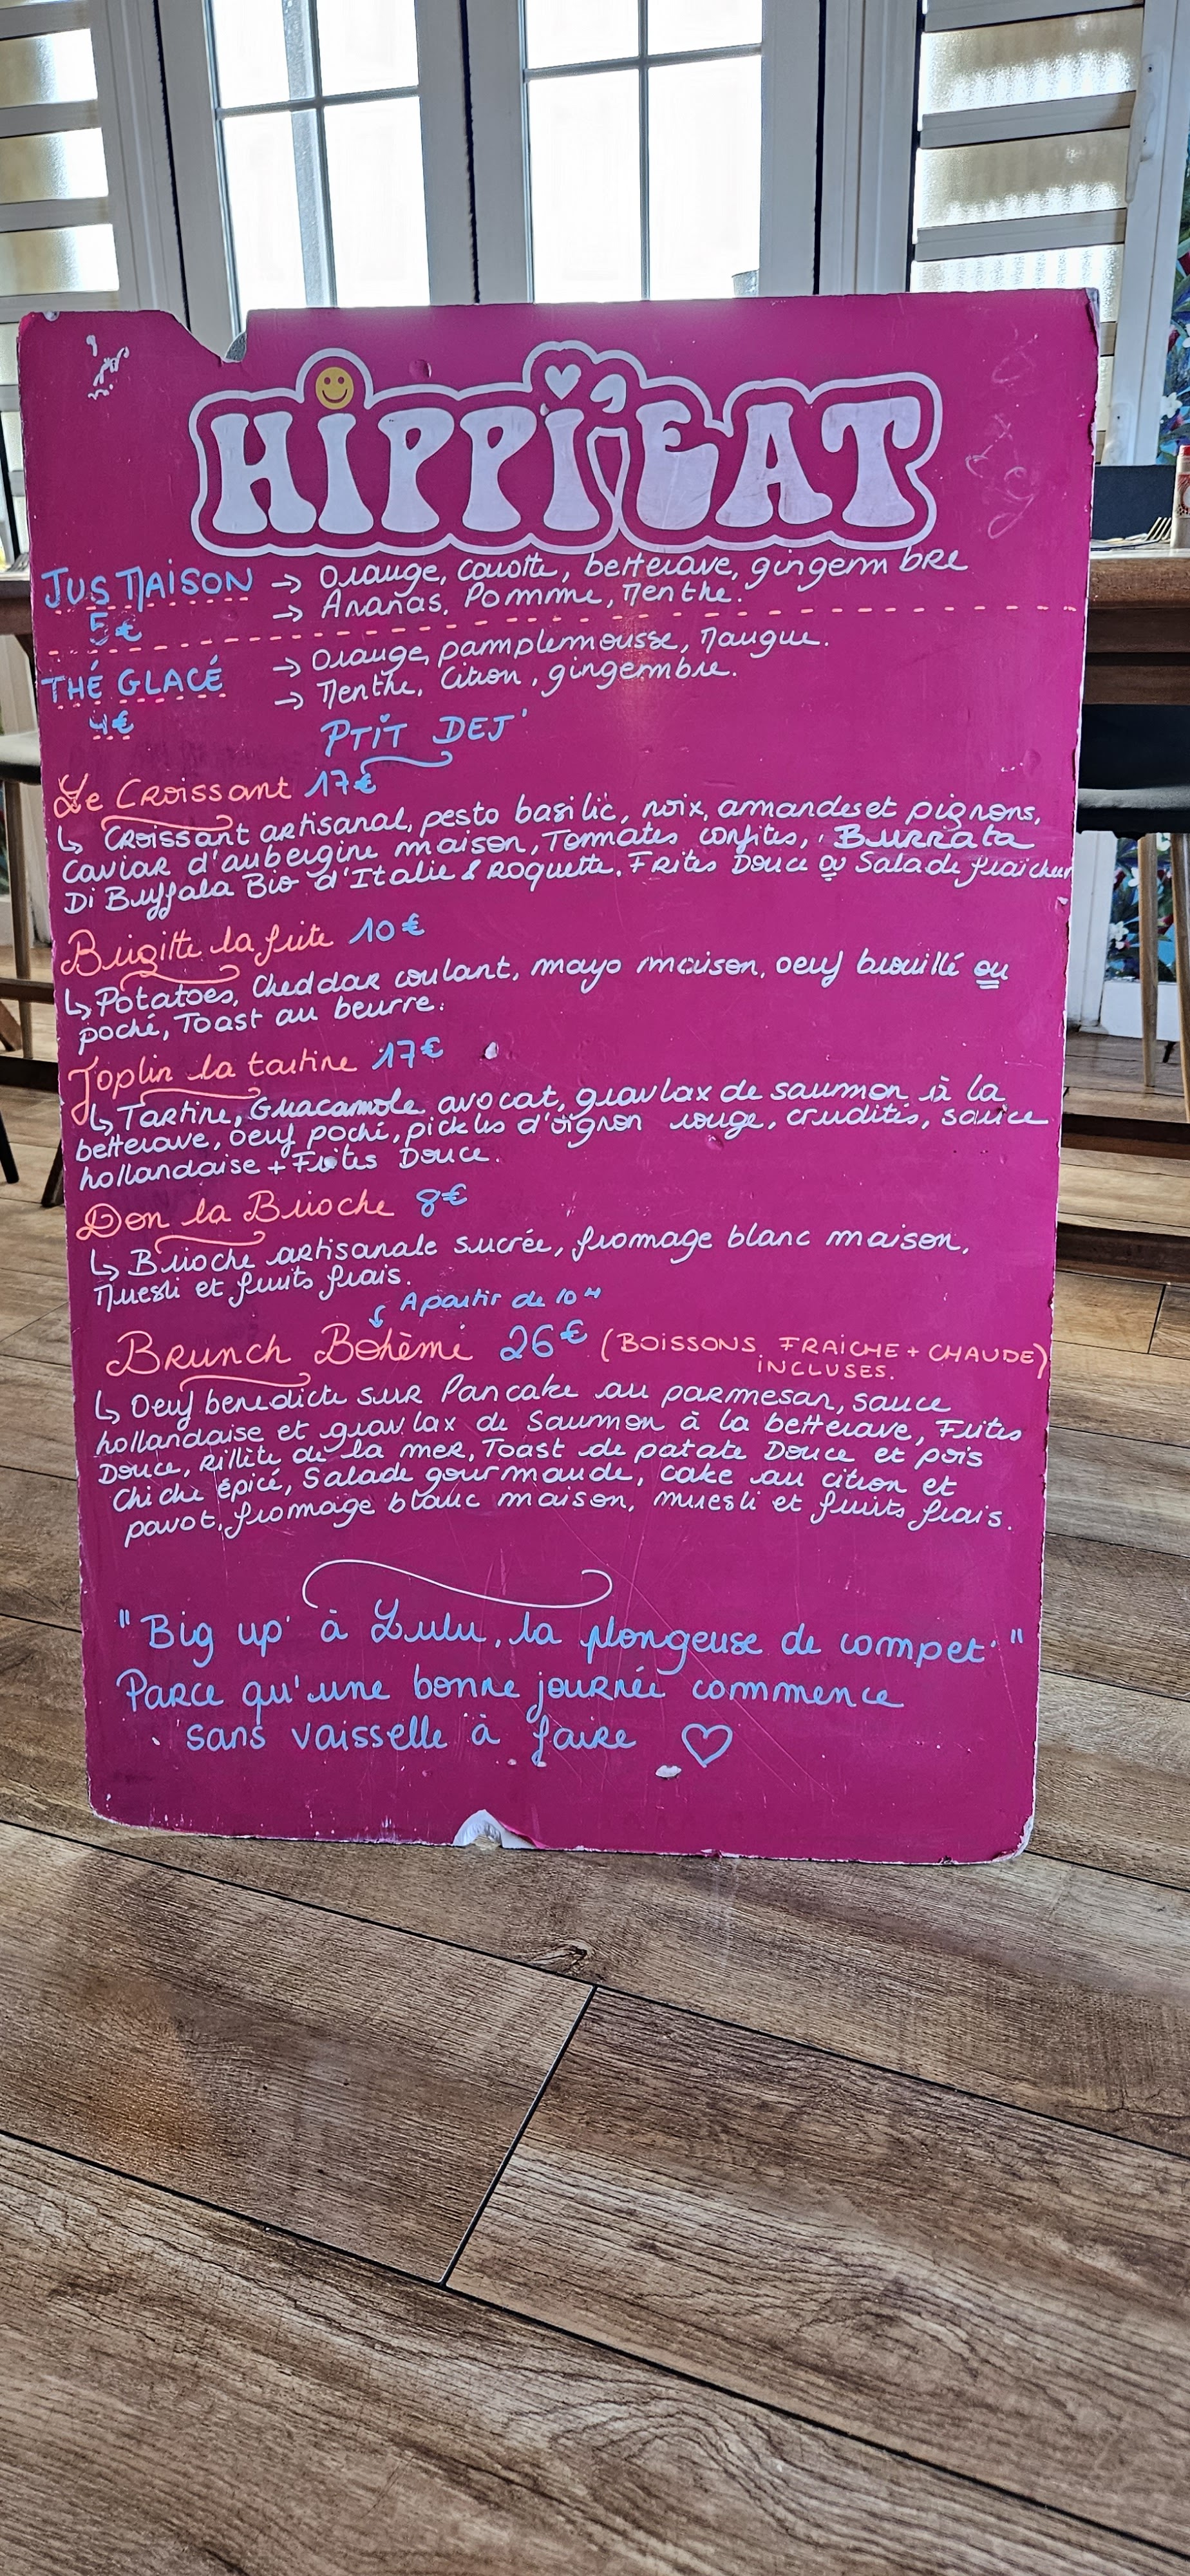 HiPPi'EAT
JUS MAISON → Orange, carotte, betterave, gingembre
5€ → Ananas, Pomme, Menthe.
THÉ GLACÉ → Orange, pamplemousse, Mangue.
4€ → Menthe, Citron, gingembre.
PTiT DEJ'
Le Croissant 17€
↳ Croissant artisanal, pesto basilic, noix, amandes et pignons,
Caviar d'aubergine maison, Tommates confites, Burrata
Di Buffala Bio d'Italie & Roquette. Frites Douce ou Salade fraicheur
Brigitte la frite 10€
↳ Potatoes, Cheddar coulant, mayo maison, oeuf brouillé ou
poché, Toast au beurre.
Joplin la tartine 17€
↳ Tartine, Guacamole avocat, gravlax de saumon à la
betterave, oeuf poché, pickles d'oignon rouge, crudités, sauce
hollandaise + Frites Douce.
Don la Brioche 8€
↳ Brioche artisanale sucrée, fromage blanc maison,
Muesli et fruits frais.
A partir de 10H
Brunch Bohème 26€ (BOISSONS FRAÎCHE + CHAUDE)
INCLUSES.
↳ Oeuf benedicte sur Pancake au parmesan, sauce
hollandaise et gravlax de Saumon à la betterave, Frites
Douce, Rillète de la mer, Toast de patate Douce et pois
Chiche épicé, Salade gourmande, cake au citron et
pavot, fromage blanc maison, muesli et fruits frais.
"Big up' à Lulu, la plongeuse de compet'"
Parce qu'une bonne journée commence
sans vaisselle à faire ♡